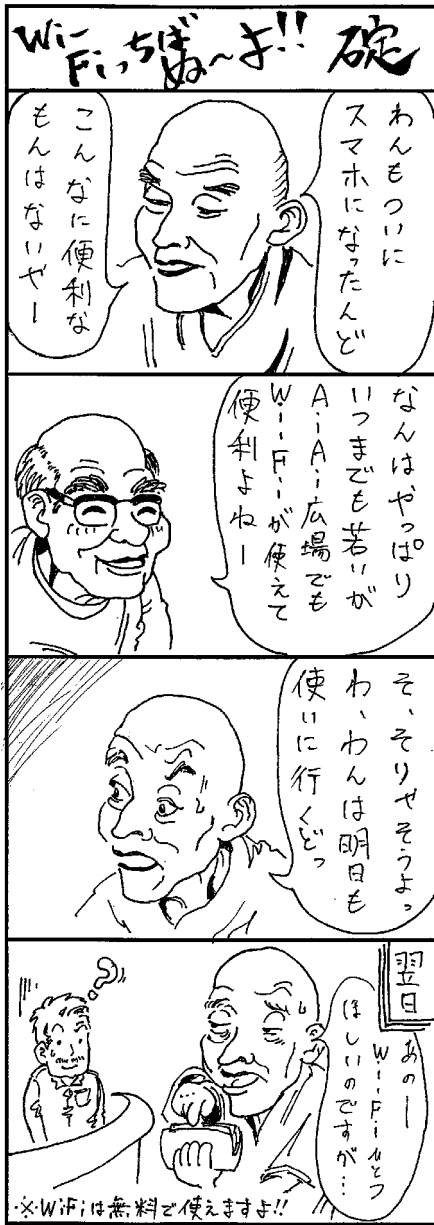 Wi-
Fiっちば
ぬ〜よ!!
碇
わんもついに
スマホになったんど
こんなに便利な
もんはないやー
なんはやっぱり
いつまでも若いが
AiAi広場でも
Wi-Fiが使えて
便利よねー
そ、そりゃそうよっ
わ、わんは明日も
使いに行くどっ
翌日
あのー
Wi-Fiひとつ
ほしいのですが…
?
※WiFiは無料で使えますよ!!